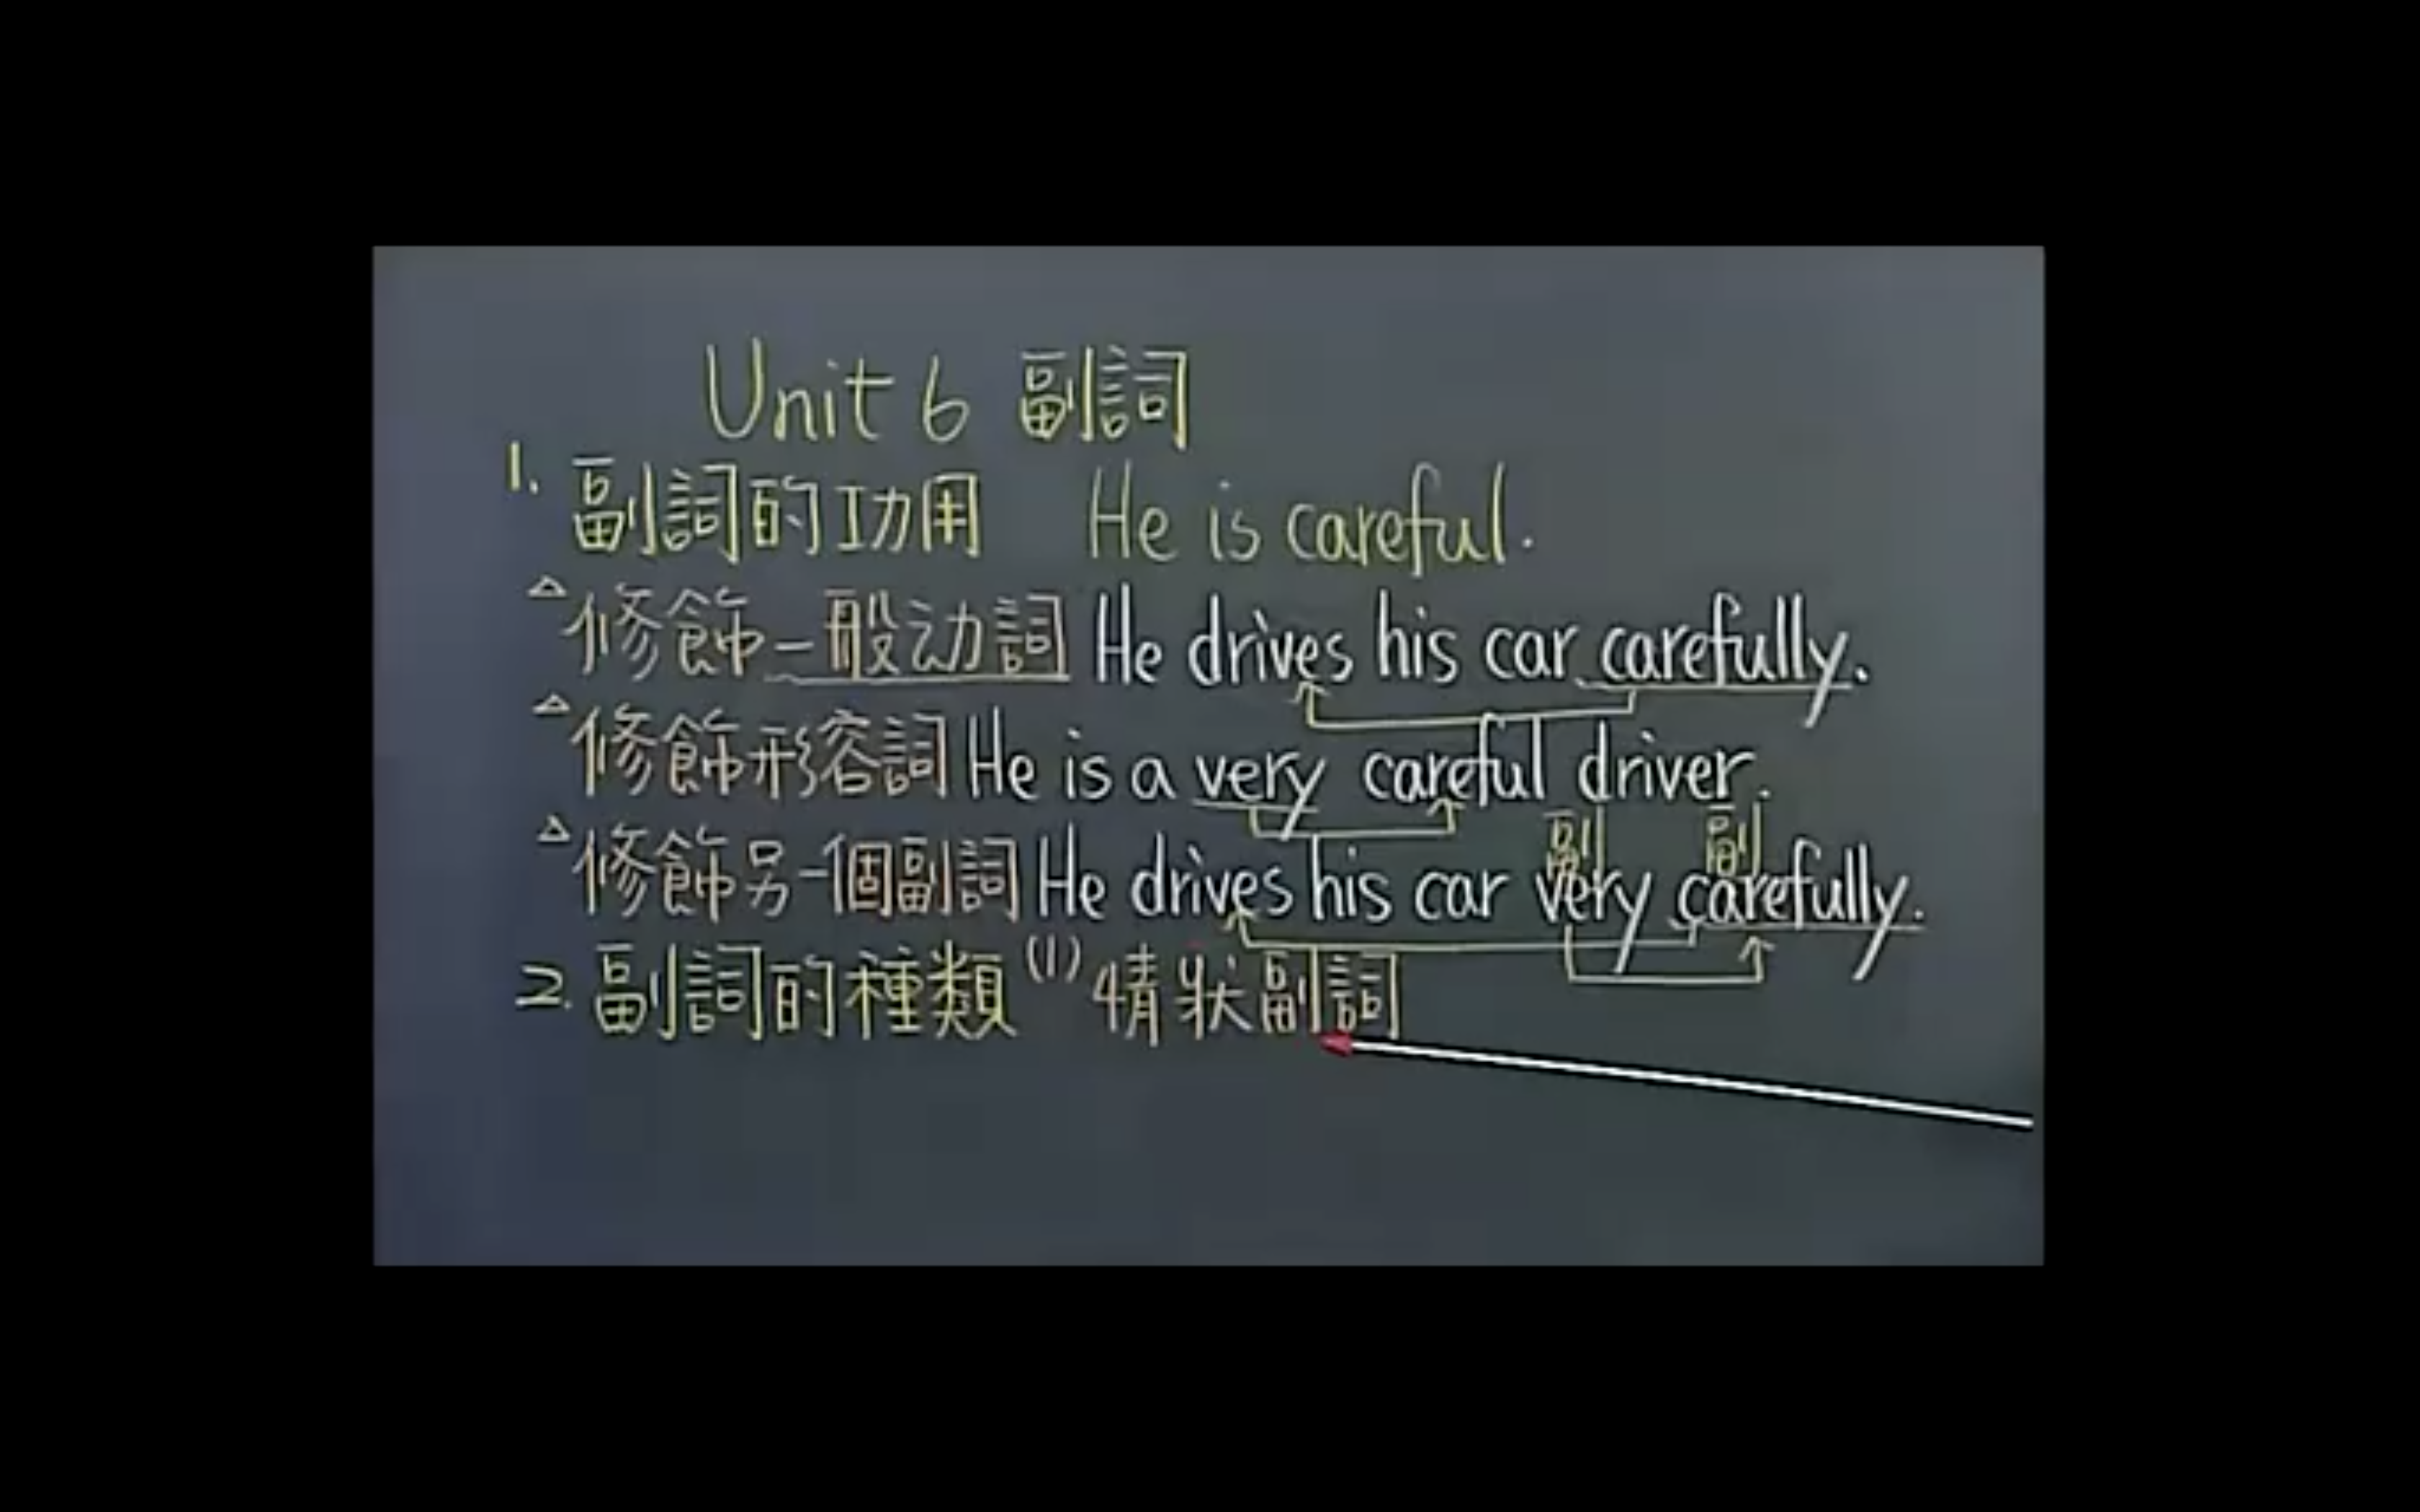 Unit 6 副詞
1. 副詞的功用 He is careful.
△修飾一般动詞 He drives his car carefully.
△修飾形容詞 He is a very careful driver.
副 副
△修飾另一個副詞 He drives his car very carefully.
2. 副詞的種類 (1) 情狀副詞